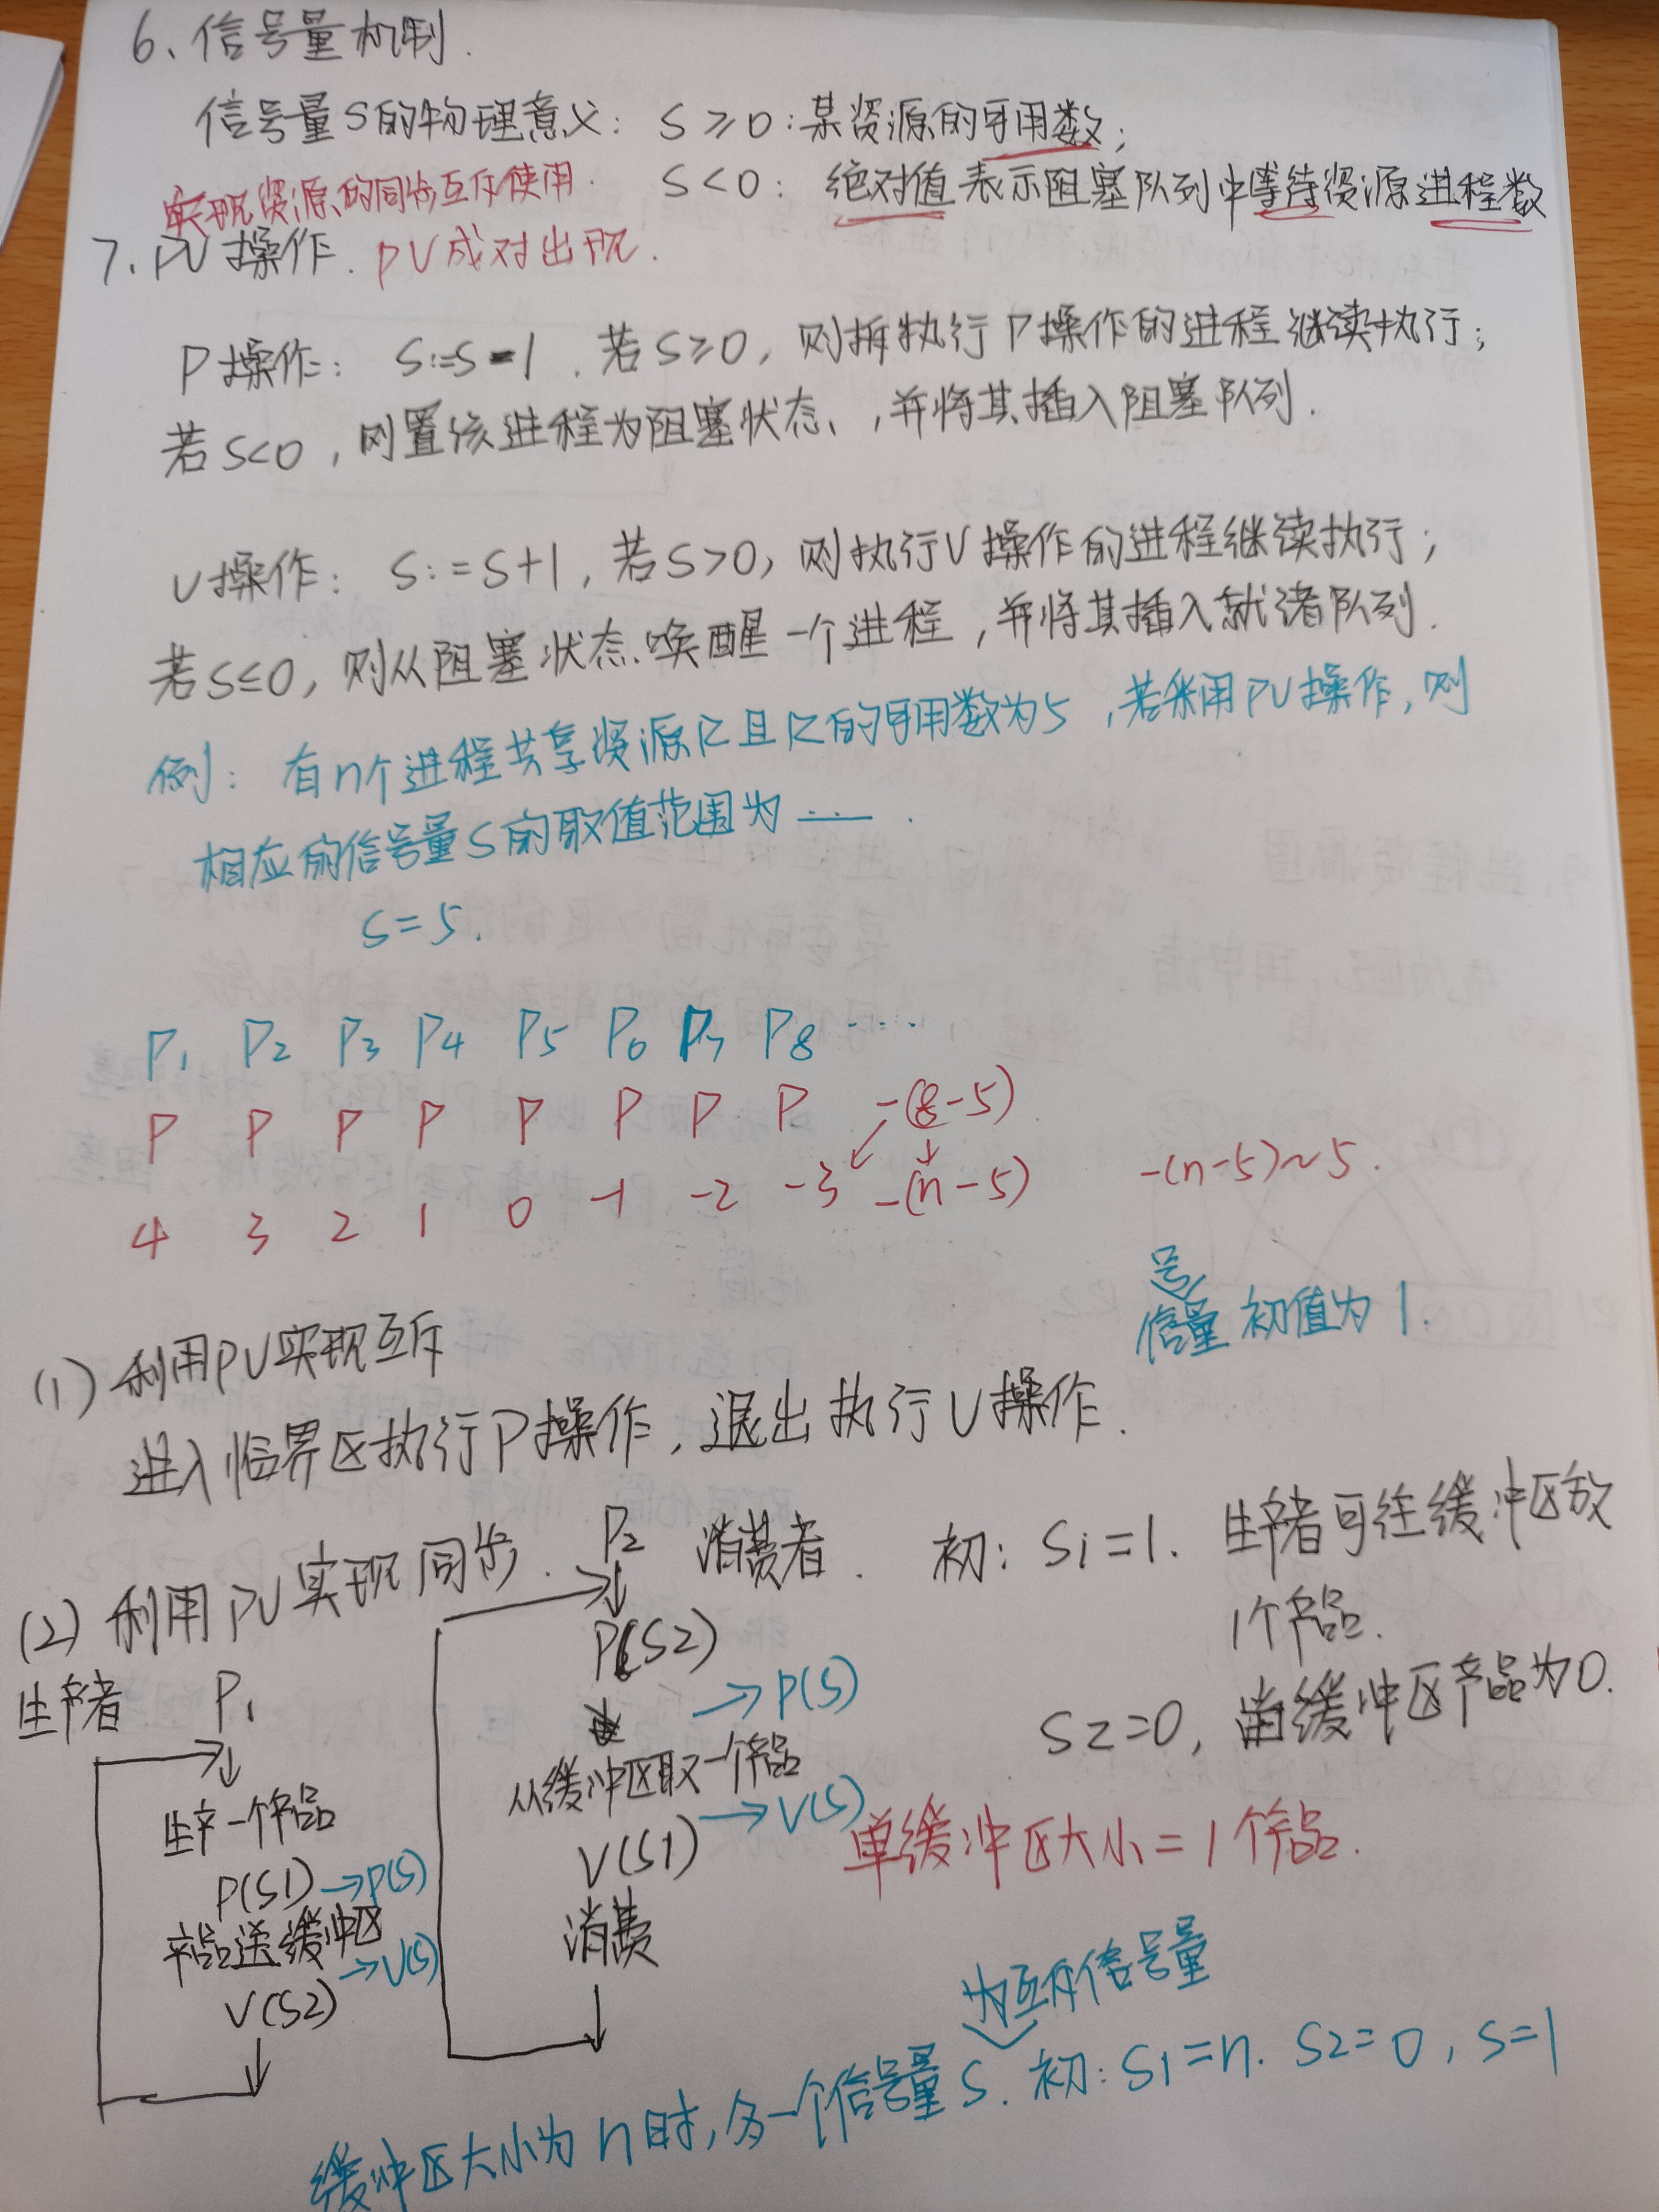 6、信号量机制.
信号量S的物理意义: S≥0:某资源的可用数;
实现资源的同步互斥使用. S<0: 绝对值表示阻塞队列中等待资源进程数
7、PV操作. PV成对出现.
P操作: S:=S-1. 若S≥0, 则执行P操作的进程继续执行;
若S<0, 则置该进程为阻塞状态, 并将其插入阻塞队列.
V操作: S:=S+1, 若S>0, 则执行V操作的进程继续执行;
若S≤0, 则从阻塞状态唤醒一个进程, 并将其插入就绪队列.
例: 有n个进程共享资源R且R的可用数为5, 若采用PV操作, 则
相应的信号量S的取值范围为 ___ .
S=5.
P1 P2 P3 P4 P5 P6 P7 P8 ....
P P P P P P P P -(8-5)
4 3 2 1 0 -1 -2 -3 -(n-5) -(n-5)~5.
信号量初值为1.
(1) 利用PV实现互斥
进入临界区执行P操作, 退出执行V操作.
(2) 利用PV实现同步.
生产者 P1
生产一个产品
P(S1)→P(S)
产品送缓冲区
V(S2) →V(S)
P2 消费者.
P(S2)
→P(S)
从缓冲区取一个产品
V(S1) →V(S)
消费
初: S1=1. 生产者可往缓冲区放
1个产品.
S2=0, 缓冲区产品为0.
单缓冲区大小=1个产品.
为互斥信号量
缓冲区大小为n时, 多一个信号量S. 初: S1=n. S2=0, S=1